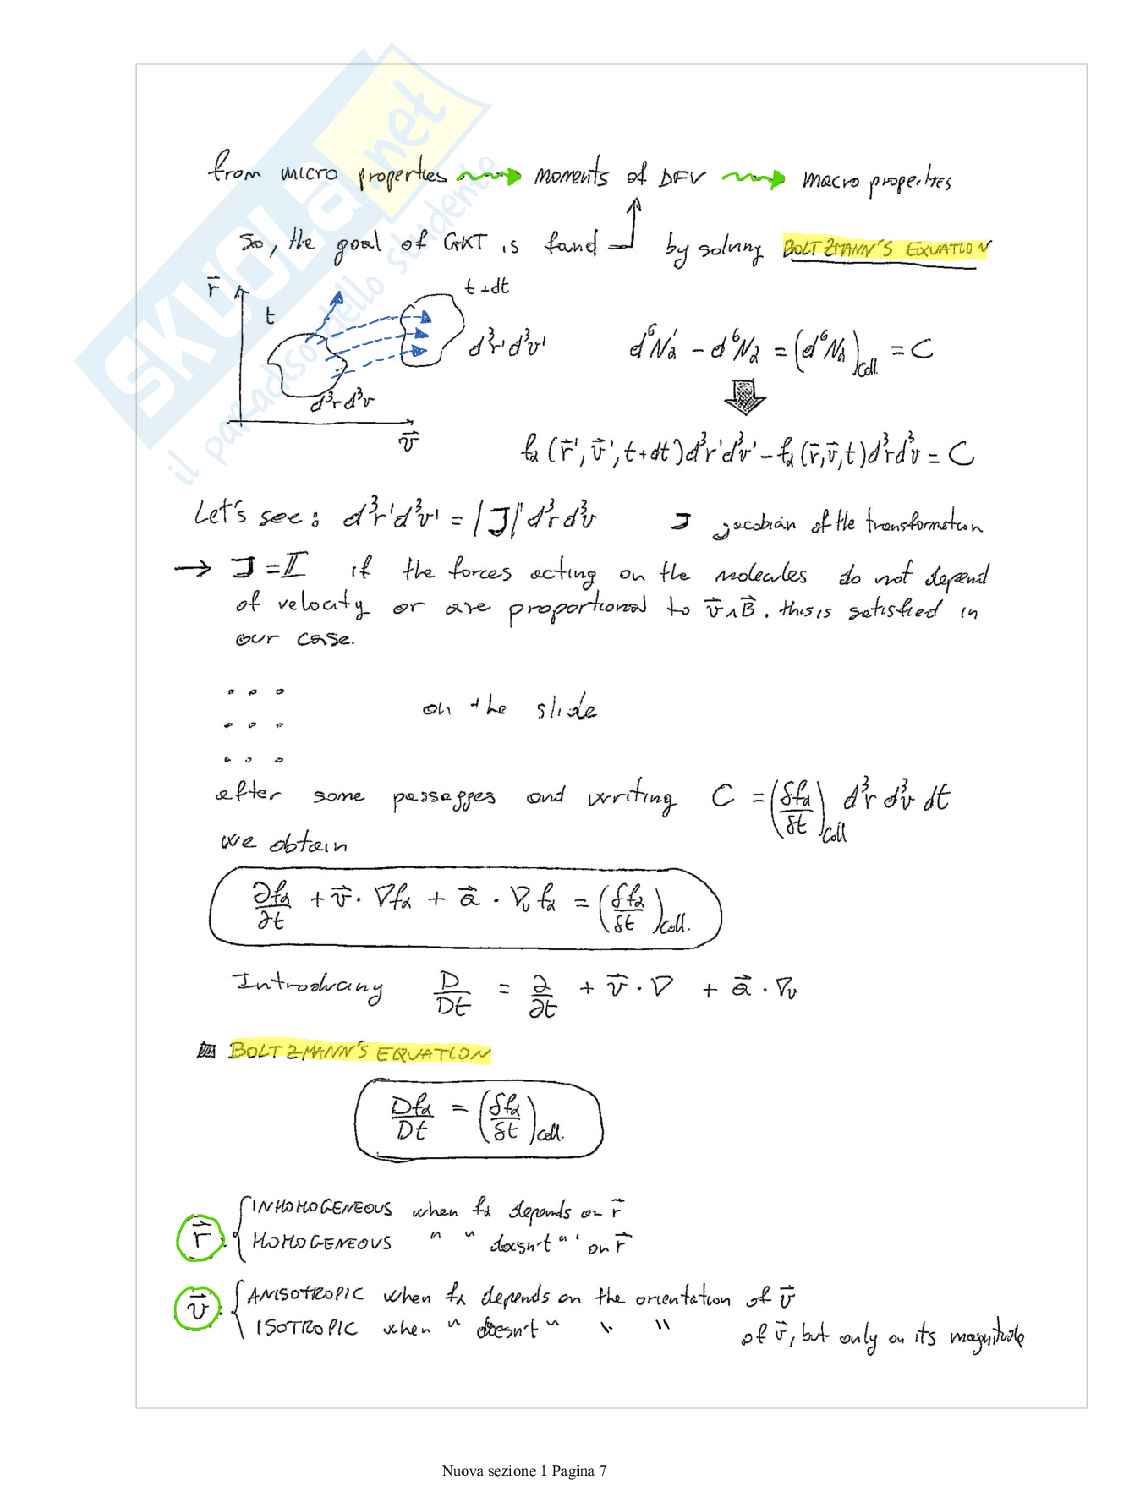 SKUOLA.net
il paradiso dello studente
from micro properties ⟿ moments of DFV ⟿ macro properties
So, the goal of GKT is fand by solving BOLTZMANN'S EQUATION
r⃗
t
t+dt
d³r'd³v'
d³rd³v
v⃗
d⁶N'α - d⁶Nα = (d⁶Nα)coll. = C
fα(r⃗', v⃗', t+dt)d³r'd³v' - fα(r⃗,v⃗,t)d³rd³v = C
Let's see: d³r'd³v' = |J| d³rd³v J jacobian of the transformation
→ J = I if the forces acting on the molecules do not depend
of velocity or are proportional to v⃗∧B⃗. this is satisfied in
our case.
on the slide
after some passagges and writing C = (δfα/δt)coll d³r d³v dt
we obtain
∂fα/∂t + v⃗·∇fα + a⃗·∇v fα = (δfα/δt)coll.
Introducing D/Dt = ∂/∂t + v⃗·∇ + a⃗·∇v
BOLTZMANN'S EQUATION
Dfα/Dt = (δfα/δt)coll.
r⃗: { INHOMOGENEOUS when fα depends on r⃗
HOMOGENEOUS " " doesn't " on r⃗
v⃗: { ANISOTROPIC when fα depends on the orientation of v⃗
ISOTROPIC when " doesn't " " " of v⃗, but only on its magnitude
Nuova sezione 1 Pagina 7